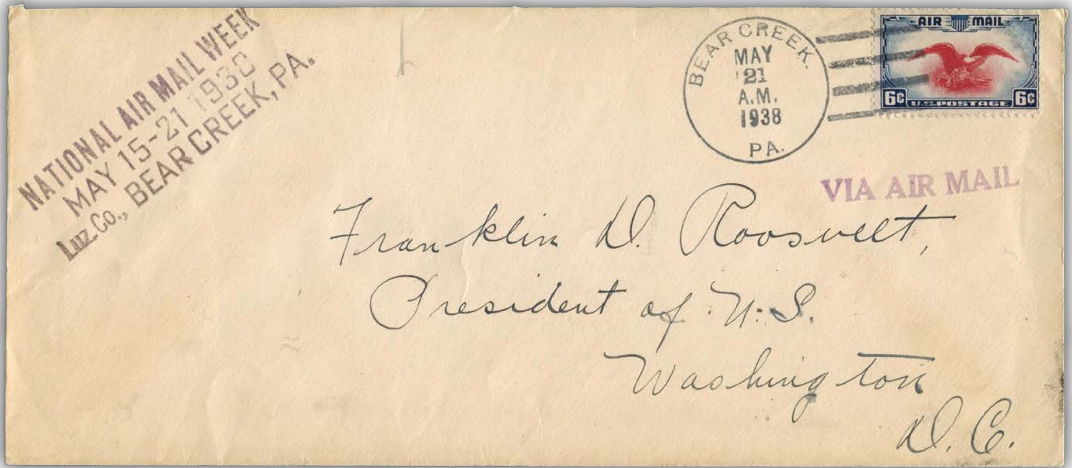 NATIONAL AIR MAIL WEEK
MAY 15-21 1938
LUZ. CO., BEAR CREEK, PA.
BEAR CREEK.
MAY
21
A.M.
1938
PA.
AIR MAIL
6¢ U.S. POSTAGE 6¢
VIA AIR MAIL
Franklin D. Roosvelt,
President of U.S.
Washington
D.C.